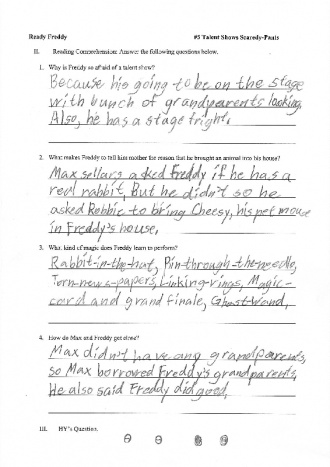 Ready Freddy #5 Talent Shows Scaredy-Pants
II. Reading Comprehension: Answer the following questions below.
1. Why is Freddy so afraid of a talent show?
Because his going to be on the stage
with bunch of grandparents looking.
Also, he has a stage fright.
2. What makes Freddy to tell his mother the reason that he brought an animal into his house?
Max sellars asked Freddy if he has a
real rabbit, But he didn't so he
asked Robbie to bring Cheesy, his pet mouse
in Freddy's house.
3. What kind of magic does Freddy learn to perform?
Rabbit-in-the-hat, Pin-through-the-needle,
Torn-news-papers, Linking-rings, Magic-
cord and grand finale, Ghost-Wand.
4. How do Max and Freddy get close?
Max didn't have any grandparents,
so Max borrowed Freddy's grandparents,
He also said Freddy did good.
III. HY's Question.